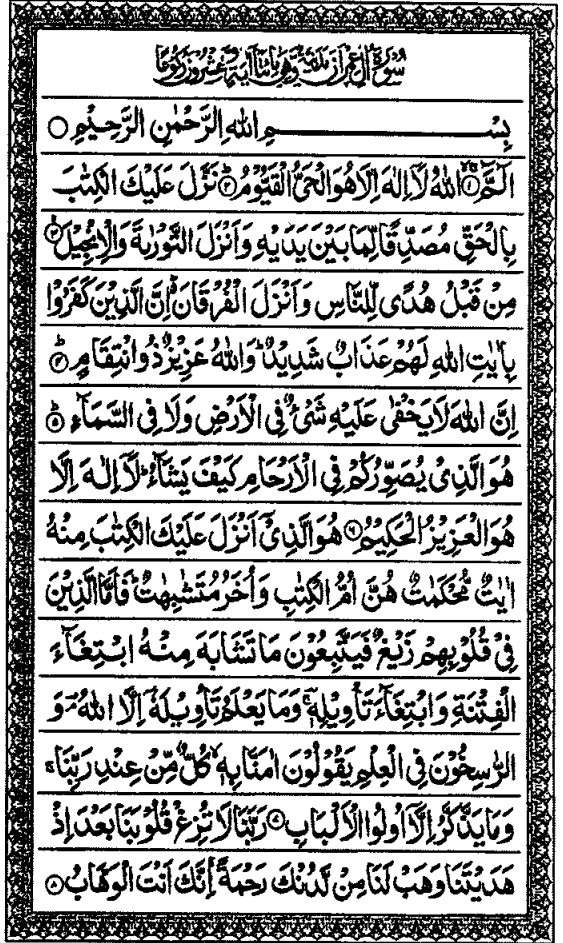 سُوْرَةُ اٰلِ عِمْرٰنَ مَدَنِيَّةٌ وَّهِيَ مِائَتَا اٰيَةٍ وَّعِشْرُوْنَ رُكُوْعًا
بِسْمِ اللهِ الرَّحْمٰنِ الرَّحِيْمِ ○
الٓمّٓ ۙ﴿۱﴾ اللهُ لَاۤ اِلٰهَ اِلَّا هُوَ الْحَيُّ الْقَيُّوْمُ ؕ﴿۲﴾ نَزَّلَ عَلَيْكَ الْكِتٰبَ
بِالْحَقِّ مُصَدِّقًا لِّمَا بَيْنَ يَدَيْهِ وَاَنْزَلَ التَّوْرٰىةَ وَالْاِنْجِيْلَ ۙ﴿۳﴾
مِنْ قَبْلُ هُدًى لِّلنَّاسِ وَاَنْزَلَ الْفُرْقَانَ ؕ۬ اِنَّ الَّذِيْنَ كَفَرُوْا
بِاٰيٰتِ اللهِ لَهُمْ عَذَابٌ شَدِيْدٌ ؕ وَاللهُ عَزِيْزٌ ذُو انْتِقَامٍ ؕ﴿۴﴾
اِنَّ اللهَ لَا يَخْفٰى عَلَيْهِ شَيْءٌ فِي الْاَرْضِ وَلَا فِي السَّمَآءِ ؕ﴿۵﴾
هُوَ الَّذِيْ يُصَوِّرُكُمْ فِي الْاَرْحَامِ كَيْفَ يَشَآءُ ؕ لَاۤ اِلٰهَ اِلَّا
هُوَ الْعَزِيْزُ الْحَكِيْمُ ﴿۶﴾ هُوَ الَّذِيْۤ اَنْزَلَ عَلَيْكَ الْكِتٰبَ مِنْهُ
اٰيٰتٌ مُّحْكَمٰتٌ هُنَّ اُمُّ الْكِتٰبِ وَاُخَرُ مُتَشٰبِهٰتٌ ؕ فَاَمَّا الَّذِيْنَ
فِيْ قُلُوْبِهِمْ زَيْغٌ فَيَتَّبِعُوْنَ مَا تَشَابَهَ مِنْهُ ابْتِغَآءَ
الْفِتْنَةِ وَابْتِغَآءَ تَاْوِيْلِهٖ ۚ وَمَا يَعْلَمُ تَاْوِيْلَهٗۤ اِلَّا اللهُ ۘ وَ
الرّٰسِخُوْنَ فِي الْعِلْمِ يَقُوْلُوْنَ اٰمَنَّا بِهٖ ۙ كُلٌّ مِّنْ عِنْدِ رَبِّنَا ۚ
وَمَا يَذَّكَّرُ اِلَّاۤ اُولُوا الْاَلْبَابِ ﴿۷﴾ رَبَّنَا لَا تُزِغْ قُلُوْبَنَا بَعْدَ اِذْ
هَدَيْتَنَا وَهَبْ لَنَا مِنْ لَّدُنْكَ رَحْمَةً ۚ اِنَّكَ اَنْتَ الْوَهَّابُ ﴿۸﴾